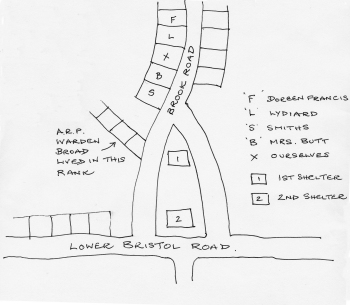 F
L
X
B
S
BROOK ROAD
A.R.P.
WARDEN
BROAD
LIVED IN THIS
RANK
1
2
LOWER BRISTOL ROAD.
'F' DOREEN FRANCIS
'L' LYDIARD
'S' SMITHS
'B' MRS. BUTT
X OURSELVES
1 1ST SHELTER
2 2ND SHELTER